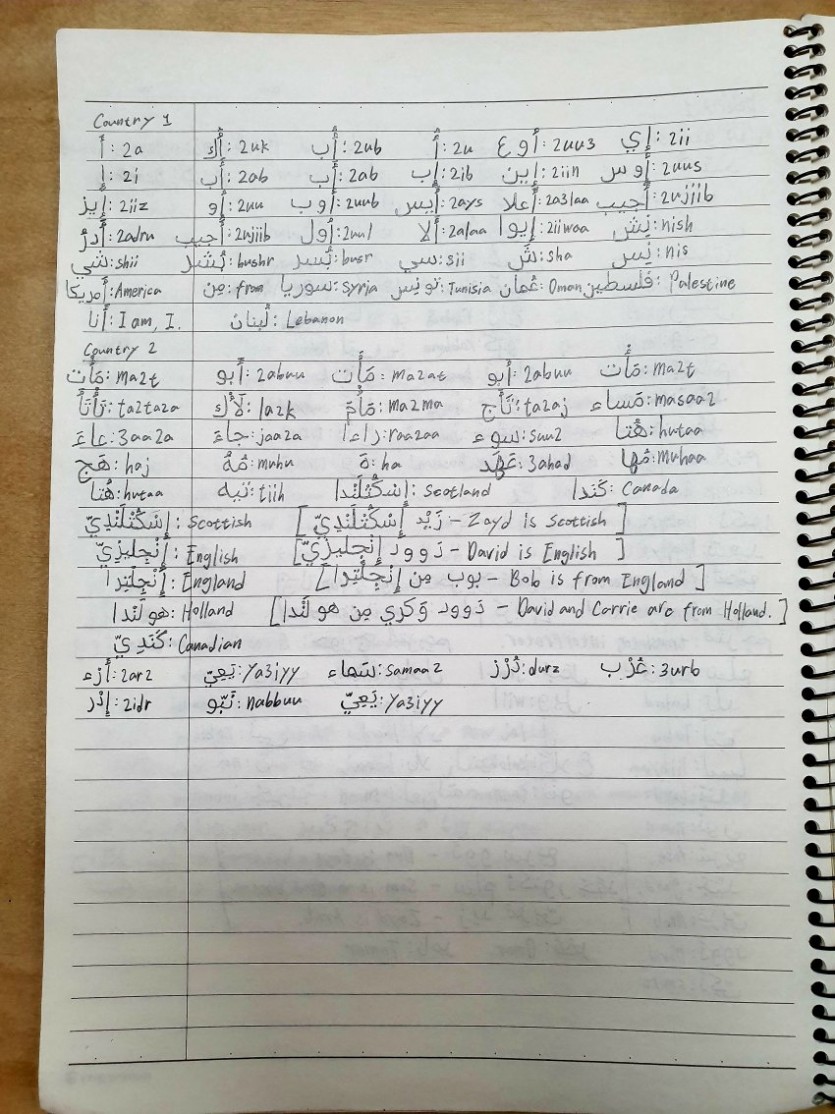 Country 1
أَ : 2a أُك : 2uk أُب : 2ub أُ : 2u أوع : 2uu3 إي : 2ii
إ : 2i أَب : 2ab أَب : 2ab إب : 2ib إين : 2iin أوس : 2uus
إيز : 2iiz أو : 2uu أوب : 2uub أَيس : 2ays أَعلا : 2a3laa أُجيب : 2ujiib
أَدرُ : 2adru أُجيب : 2ujiib أول : 2uul أَلا : 2alaa إيوا : 2iiwaa نِش : nish
شي : shii بُشر : bushr بُسر : busr سي : sii شَ : sha نِس : nis
أَمريكا : America مِن : from سوريا : Syria تونِس : Tunisia عُمان : Oman فِلَسطين : Palestine
أَنا : I am, I. لُبنان : Lebanon
Country 2
مَأت : ma2t أَبو : 2abuu مَأَت : ma2at أَبو : 2abuu مَأْت : ma2t
تَأْتَأَ : ta2ta2a لَأْك : la2k مَأْمَ : ma2ma تَأَج : ta2aj مَساء : masaa2
عاءَ : 3aa2a جاءَ : jaa2a راءا : raa2aa سوء : suu2 هُتا : hutaa
هَج : haj مُهُ : muhu هَ : ha عَهَد : 3ahad مُها : muhaa
هُتا : hutaa تيه : tiih إسْكُتْلَنْدا : Scotland كَنَدا : Canada
إِسْكُتْلَنْدِيّ : Scottish [ زَيْد إِسْكُتْلَنْدِيّ – Zayd is Scottish ]
إِنْجِليزِيّ : English [ دَوود إِنْجِليزِيّ – David is English ]
إِنْجِلْتِرا : England [ بوب مِن إِنْجِلْتِرا – Bob is from England ]
هولَنْدا : Holland [ دَوود وَكَري مِن هولَنْدا – David and Carrie are from Holland. ]
كَنَدِيّ : Canadian
أَرْء : 2ar2 يَعِيّ : Ya3iyy سَماء : samaa2 دُرْز : durz عُرْب : 3urb
إِدْر : 2idr نَبّو : nabbuu يَعِيّ : Ya3iyy